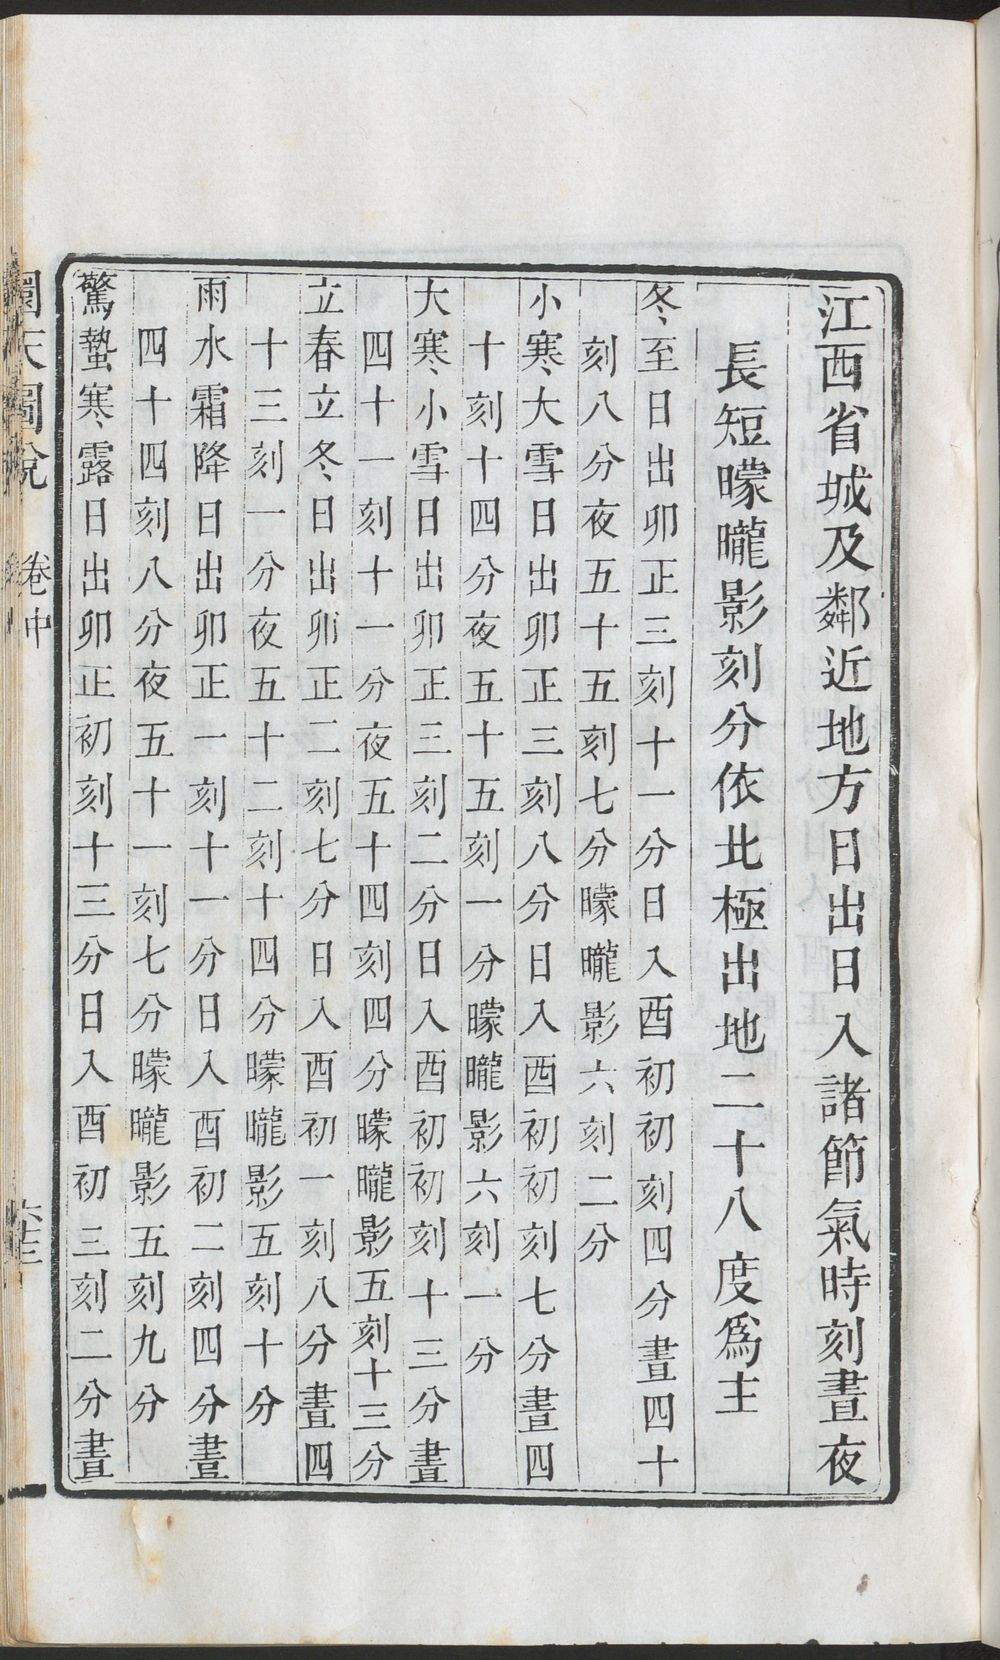 江西省城及鄰近地方日出日入諸節氣時刻晝夜
長短曚曨影刻分依北極出地二十八度爲主
冬至日出卯正三刻十一分日入酉初初刻四分晝四十
刻八分夜五十五刻七分曚曨影六刻二分
小寒大雪日出卯正三刻八分日入酉初初刻七分晝四
十刻十四分夜五十五刻一分曚曨影六刻一分
大寒小雪日出卯正三刻二分日入酉初初刻十三分晝
四十一刻十一分夜五十四刻四分曚曨影五刻十三分
立春立冬日出卯正二刻七分日入酉初一刻八分晝四
十三刻一分夜五十二刻十四分曚曨影五刻十分
雨水霜降日出卯正一刻十一分日入酉初二刻四分晝
四十四刻八分夜五十一刻七分曚曨影五刻九分
驚蟄寒露日出卯正初刻十三分日入酉初三刻二分晝
圜天圖說 卷中